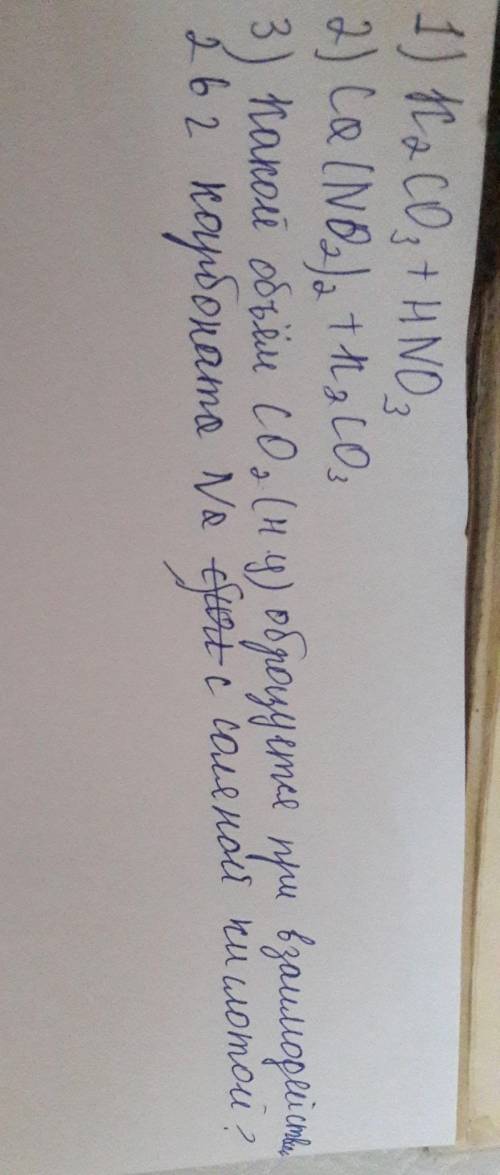 1) K₂CO₃ + HNO₃
2) Ca(NO₂)₂ + K₂CO₃
3) Какой объём CO₂ (н.у) образуется при взаимодействии
2 в г карбоната Na с соляной кислотой?